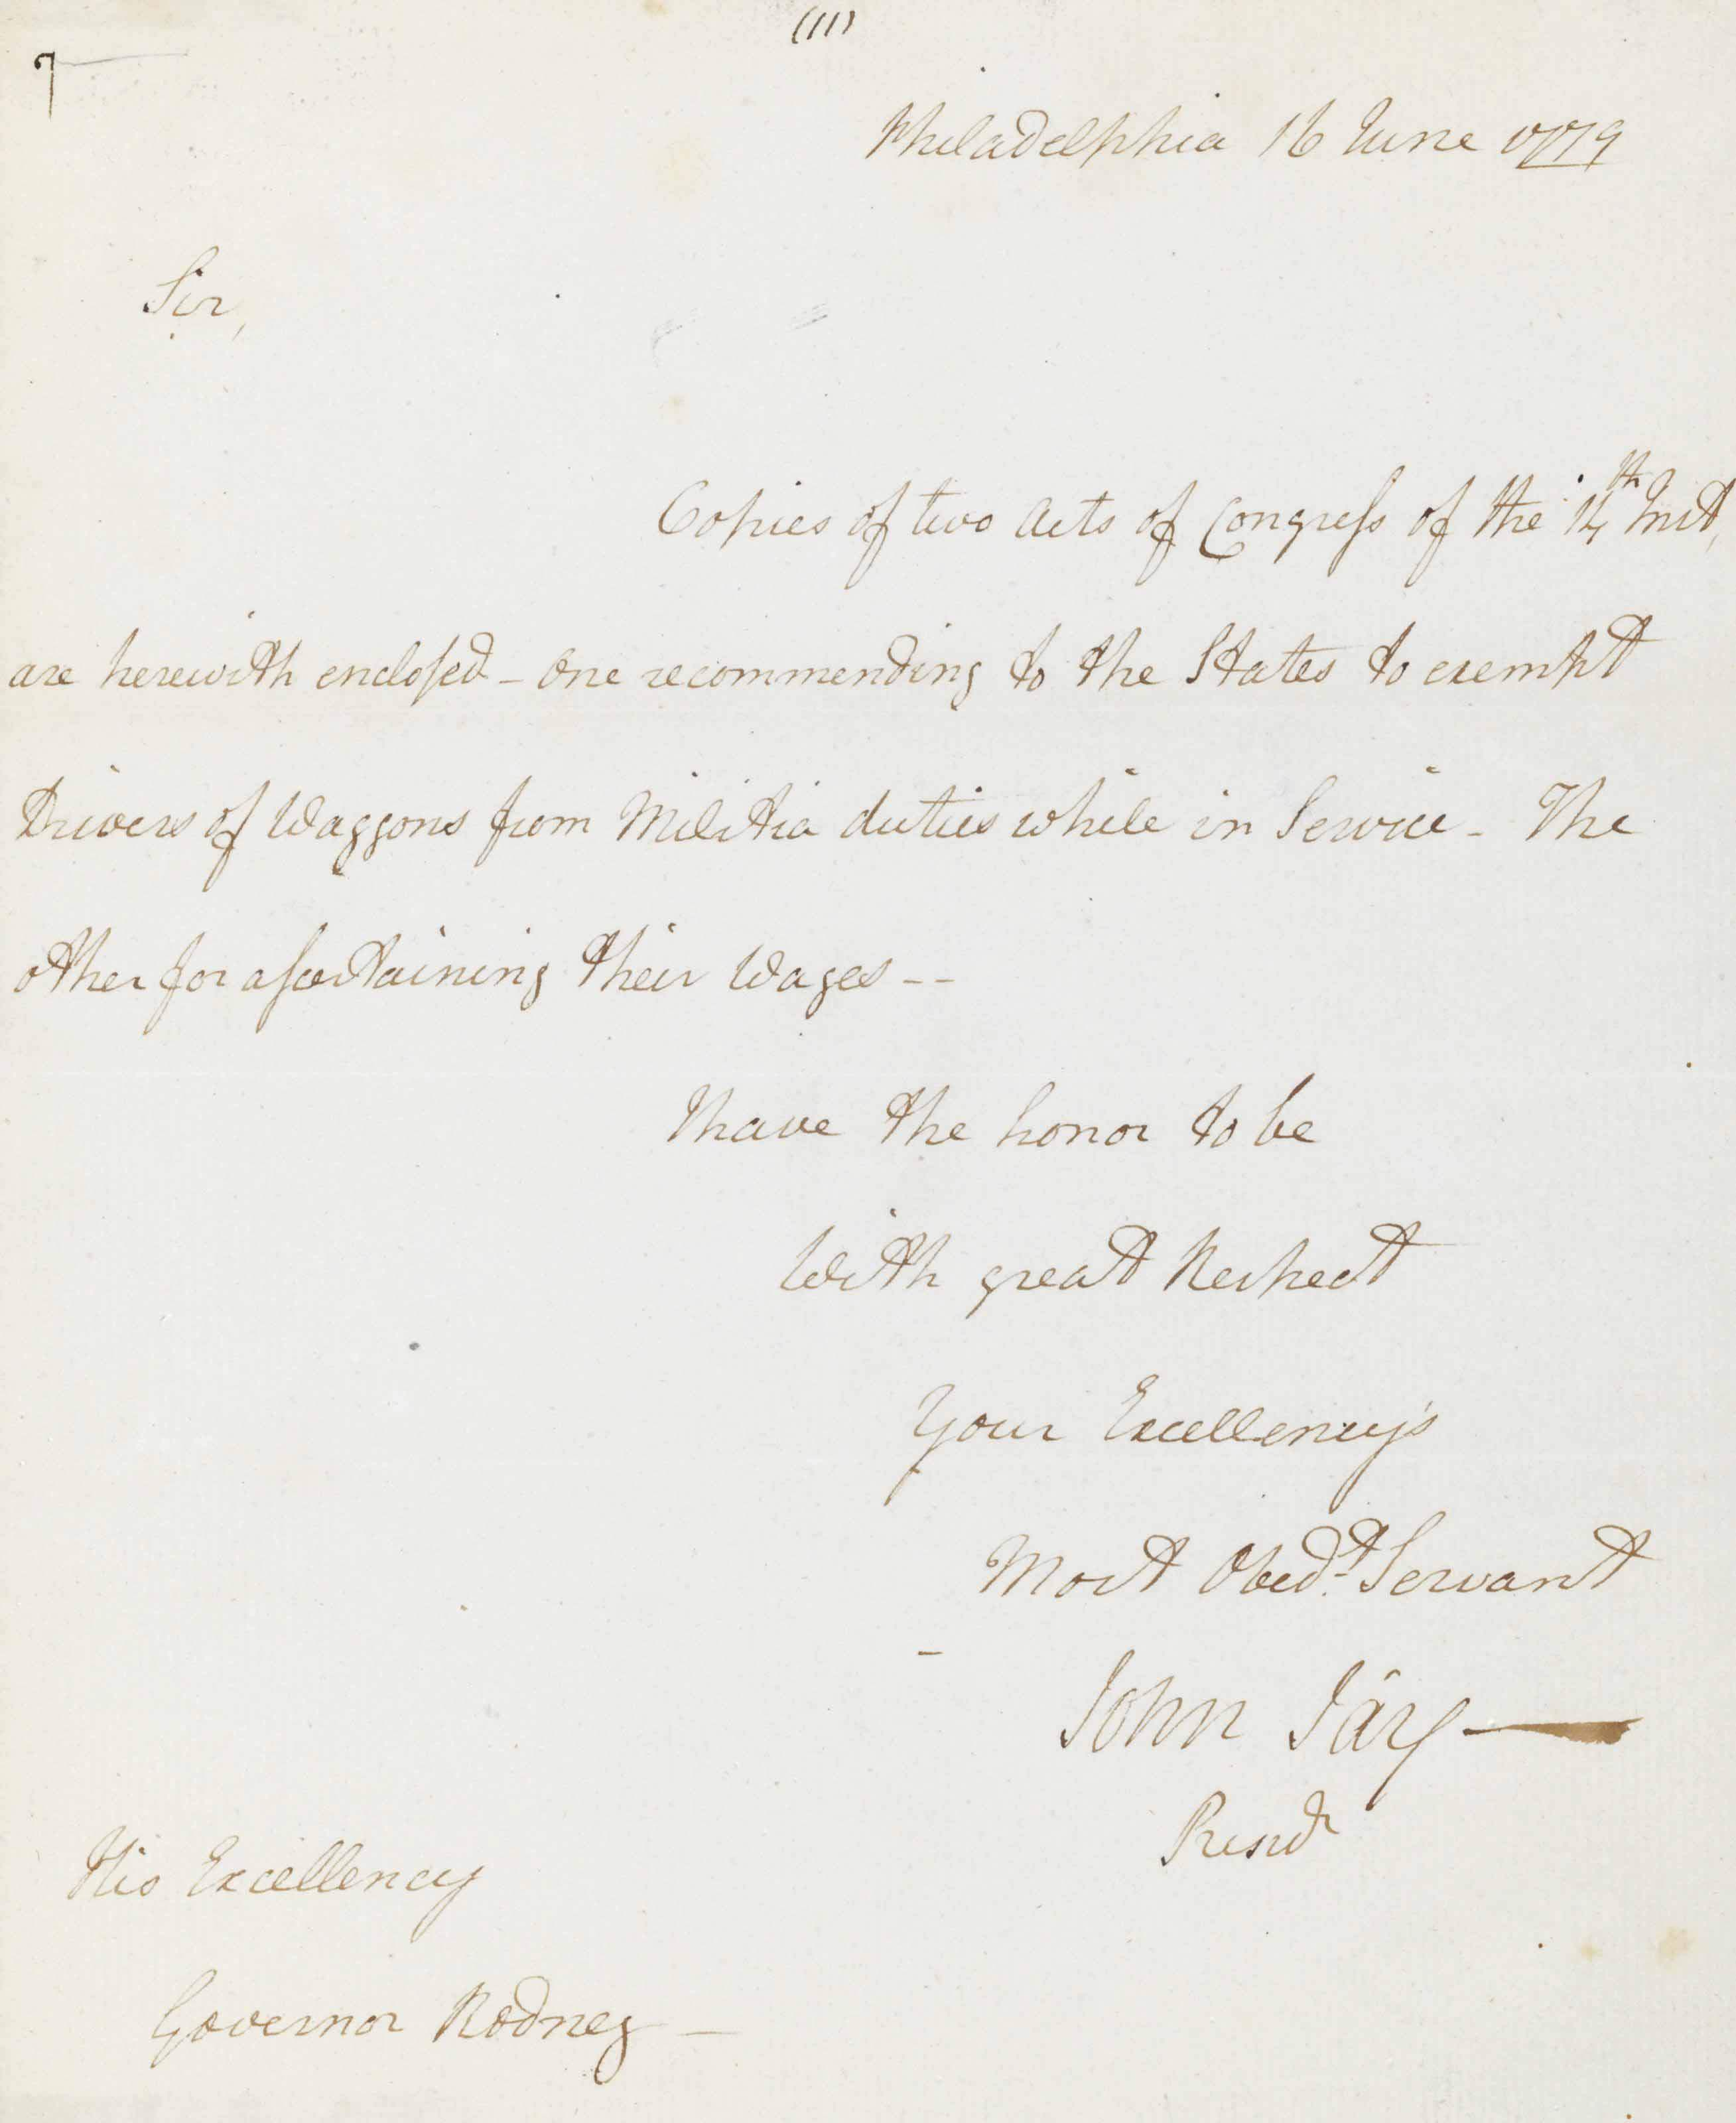 (11)
7
Philadelphia 16 June 1779
Sir,
Copies of two Acts of Congress of the 14th Inst,
are herewith enclosed - One recommending to the States to exempt
Drivers of Waggons from Militia duties while in Service - The
other for ascertaining their Wages --
I have the honor to be
With great Respect
Your Excellency's
Most Obedt. Servant
John Jay
Presidt
His Excellency
Governor Rodney —